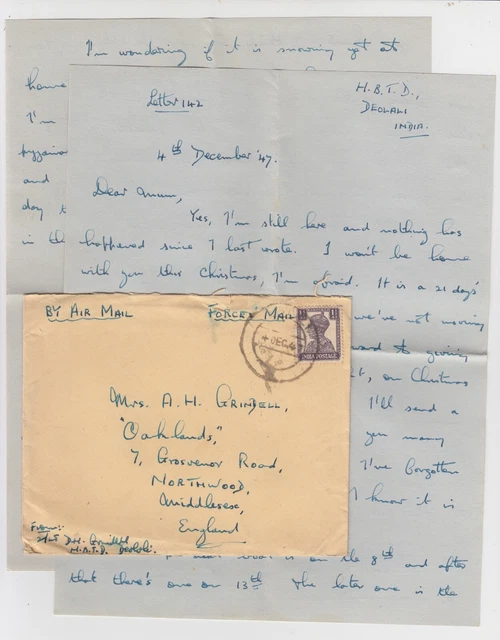 I'm wondering if it is snowing yet at
home
I'm
pyjamas
and
day t
in the
Letter 142
H.B.T.D.,
DEOLALI
INDIA.
4th December '47.
Dear Mum,
Yes, I'm still here and nothing has
happened since I last wrote. I won't be home
with you this Christmas, I'm afraid. It is a 21 days'
we've not moving
ward to giving
it, on Christmas
I'll send a
you many
I've forgotten
I know it is
boat is on the 8th and after
that there's one on 13th The later one is the
BY AIR MAIL
FORCES MAIL
4 DEC. 4
INDIA POSTAGE
Mrs. A. H. GRINDELL,
"Oaklands,"
7, Grosvenor Road,
NORTHWOOD,
Middlesex,
England
From:-
D.H. Grindell
H.B.T.D. Deolali.